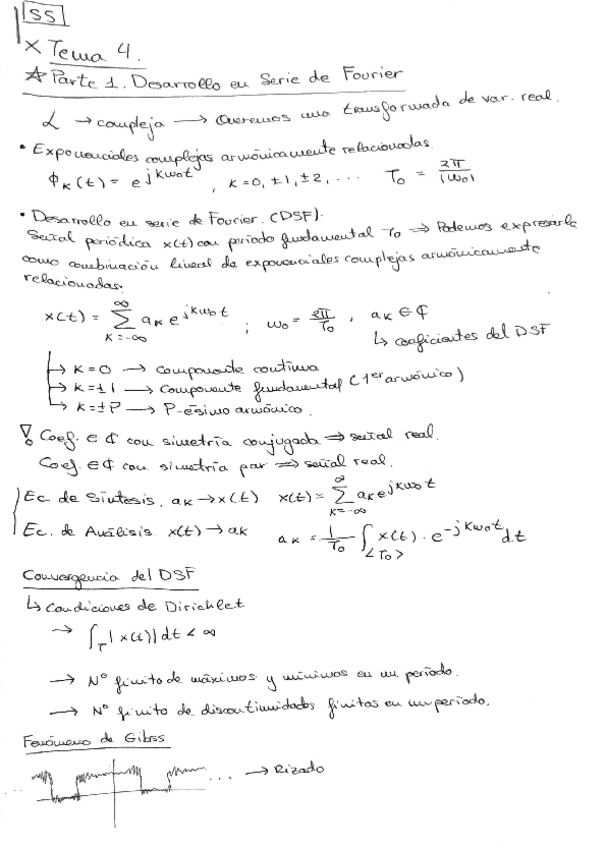 SS
x Tema 4.
☆ Parte 1. Desarrollo en Serie de Fourier
L → compleja → Queremos una transformada de var. real.
• Exponenciales complejas armónicamente relacionadas.
ϕ_K(t) = e^{jKω₀t}, K=0, ±1, ±2, ... T₀ = 2π/|ω₀|
• Desarrollo en serie de Fourier. (DSF).
Señal periódica x(t) con período fundamental T₀ ⇒ Podemos expresarla
como combinación lineal de exponenciales complejas armónicamente
relacionadas:
x(t) = ∑_{K=-∞}^{∞} a_K e^{jKω₀t} ; ω₀ = 2π/T₀, a_K ∈ ₵
↳ coeficientes del DSF
↳ K=0 → Componente continua
↳ K=±1 → Componente fundamental (1er armónico)
↳ K=±P → P-ésimo armónico.
Coef. ∈ ₵ con simetría conjugada ⇒ señal real.
Coef. ∈ ₵ con simetría par ⇒ señal real.
Ec. de Síntesis. a_K → x(t) x(t) = ∑_{K=-∞}^{∞} a_K e^{jKω₀t}
Ec. de Análisis x(t) → a_K a_K = 1/T₀ ∫_{<T₀>} x(t) · e^{-jKω₀t} dt
Convergencia del DSF
↳ Condiciones de Dirichlet
→ ∫_T |x(t)| dt < ∞
→ Nº finito de máximos y mínimos en un período.
→ Nº finito de discontinuidades finitas en un período.
Fenómeno de Gibss
... → Rizado